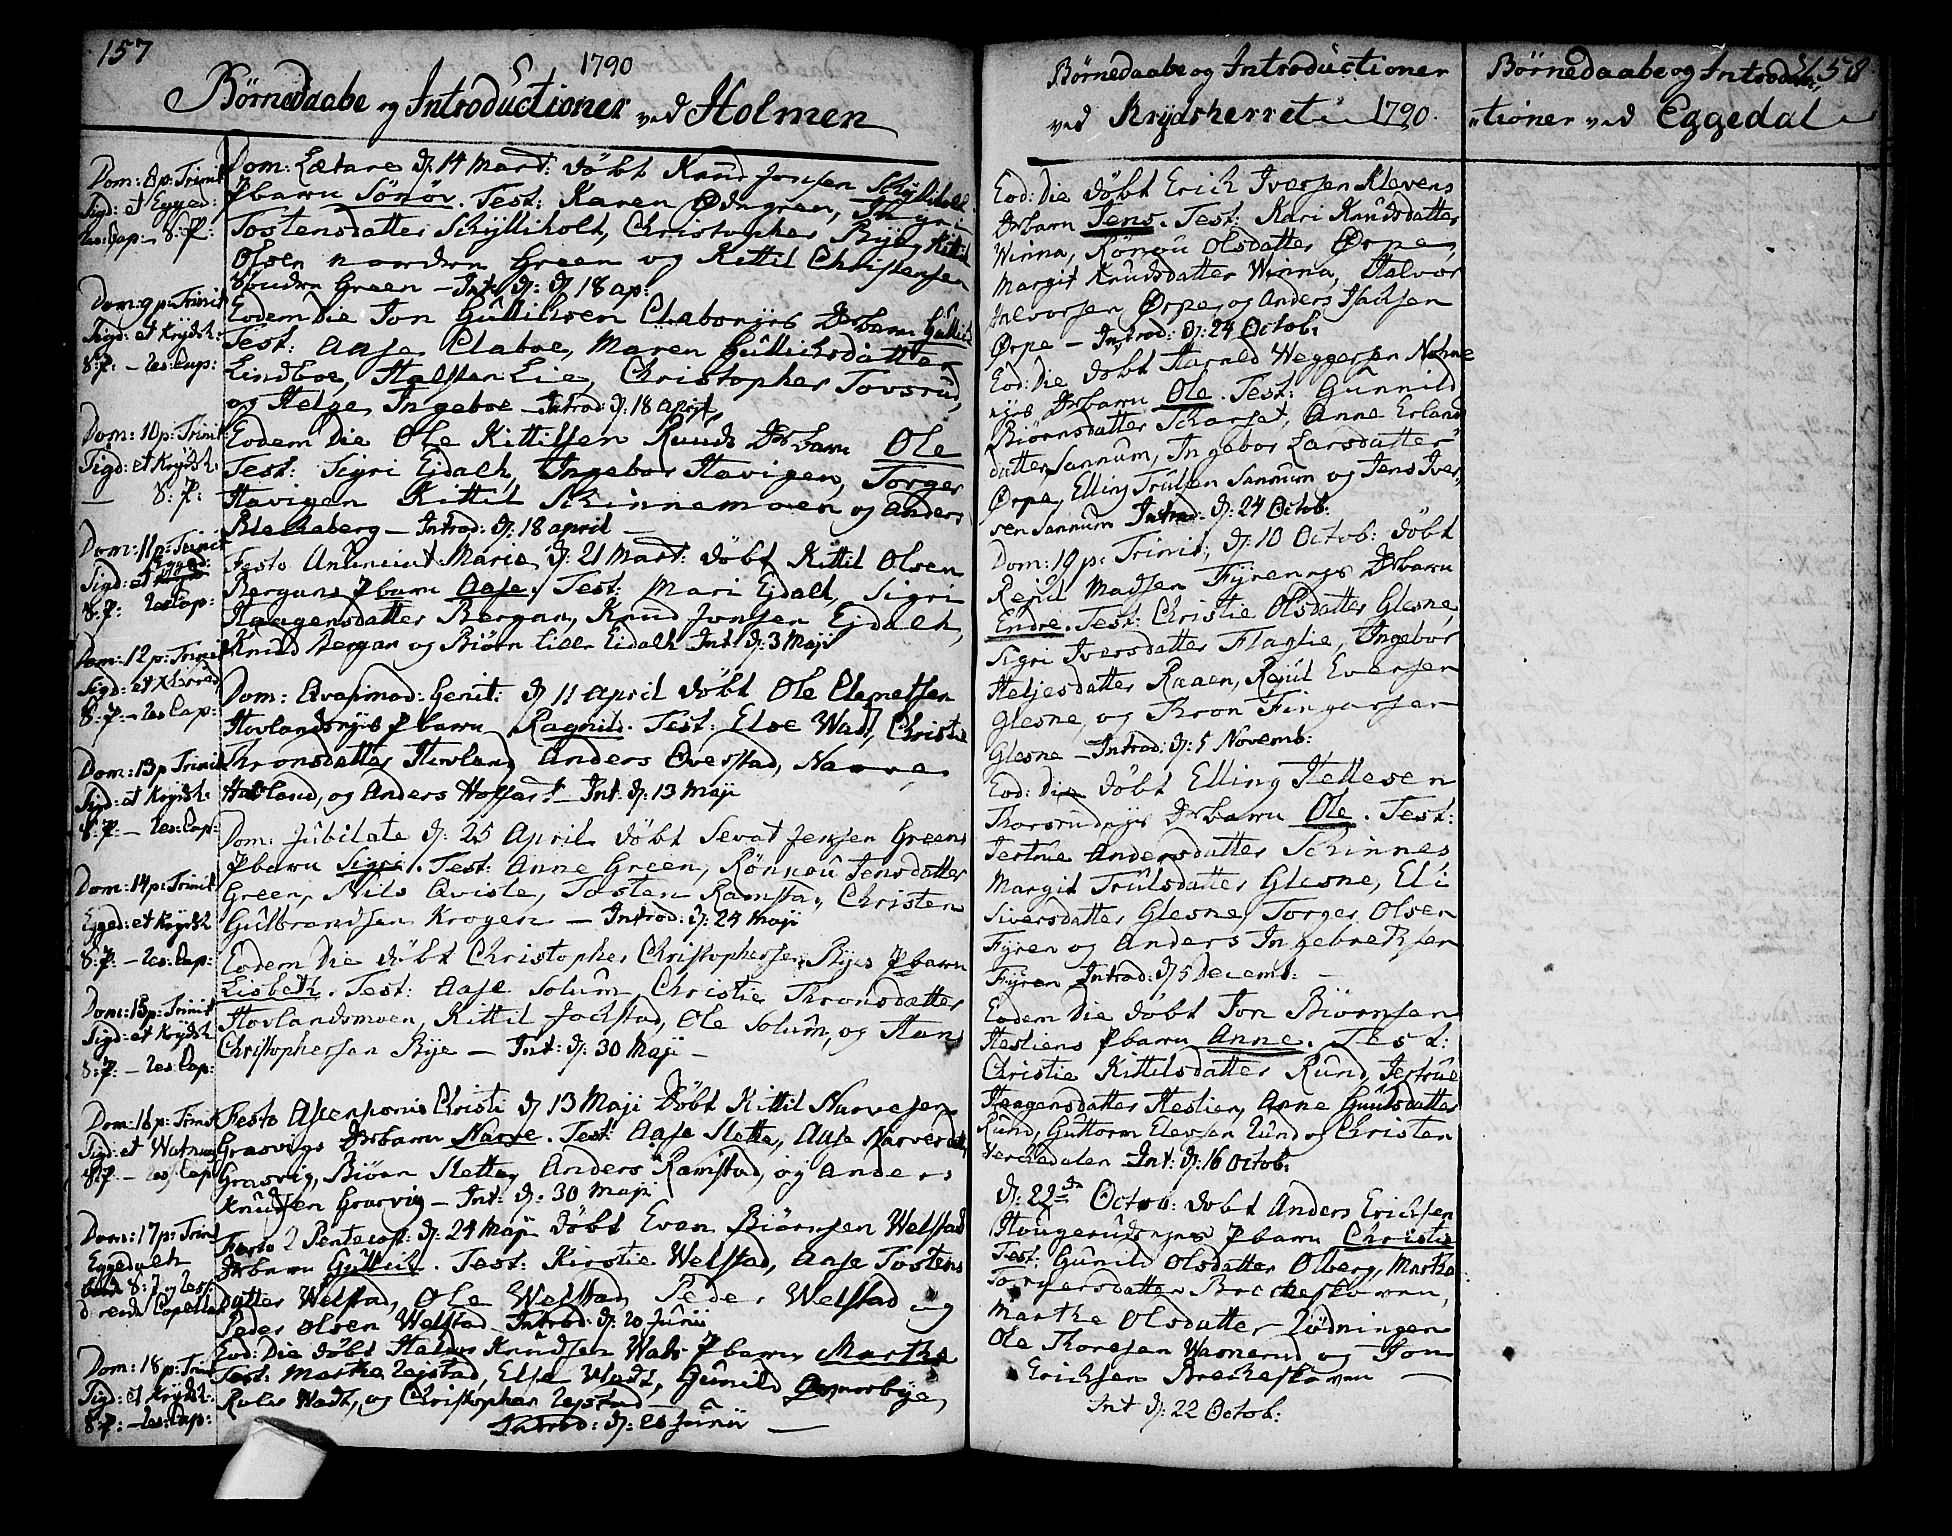 157
1790
Børnedaabe og Introductioner ved Holmen
Dom: 8 p: Trinit
Sigd: et Egged:
S: P:
Dom: 9 p: Trinit
Sigd: et Krydsh:
S: P: –
Dom: 10 p: Trinit
Sigd: et Krydsh:
— S: P:
Dom: 11 p: Trinit
Sigd: et Egged:
S: P:
Dom: 12 p: Trinit
Sigd: et
S: P: –
Dom: 13 p Trinit
Sigd: et Krydsh:
S: P: –
Dom: 14 p: Trinit
Egged: et Krydsh
S: P. –
Dom: 15 p: Trinit
Sigd: et Krydsh
S: P: –
Dom: 16 p: Trinit
Sigd: et
S: P –
Dom: 17 p: Trinit
Eggedalh
S: P
Dom: 18 p: Trinit
Sigd: et Krydsh:
S: P: –
Dom: Lætare d: 14 Mart: døbt Knud Jonsen
Pbarn Sønøv. Test: Karen Ødngreen,
Tostensdatter Schylliholt, Christopher Bye, Kittil
Olsen nordre Green og Kittil Christensen
Søndre Green – Int: d: 18 ap:
Eodem Die Jon Gullichsen Claboenys Drbarn Gullich
Test: Aase Claboe, Maren Gullichsdatter
Lindboe, Halsten Lie, Christopher Tovsrud,
og Helge Ingeboe – Introd: d: 18 April
Eodem Die Ole Kittilsen Ruuds Drbarn Ole
Test: Sigri Ejdalh, Ingebor Havigen, Torger
Havigen Kittil Skinnemoen og Anders
Blechaberg – Introd: d: 18 april –
Festo Anunciat: Mariæ d: 21 Mart: døbt Kittil Olsen
Bergans Pbarn Aase. Test: Mari Ejdalh, Sigri
Haagensdatter Bergan, Knud Jonsen Ejdalh,
Knud Bergan og Biørn Lille Eidalh Int: d: 3 Maji
Dom: Qvasimod: Genit: d 11 april døbt Ole Clemetsen
Hovlandsnys Pbarn Ragnild. Test: Else Wadt, Christie
Thronsdatter Hovland, Anders Overstad, Narve
Hovland, og Anders – Int: d: 13 Maji
Dom: Jubilate d: 25 April døbt Sevat Jensen Greens
Pbarn Sigri. Test: Anne Green, Rønnou Jensdatter
Green, Nils Qviste, Tosten Ramstad, Christen
Gulbrandsen Krogen – Introd: d: 24 Maji
Eodem Die døbt Christopher Christophersen Byes Pbarn
Lisbeth. Test: Aase Solum, Christie Thronsdatter
Hovlandsmoen, Kittil Jochstad, Ole Solum, og Hans
Christophersen Bye – Int: d: 30 Maji –
Festo Ascensionis Christi d 13 Maji Døbt Kittil Narvesen
Grasvigs Drbarn Narve. Test: Aase Slette, Aase Narvesdatt
Grasvig, Biørn Slette, Anders Ramstad, og Anders
Knudsen Grasvig – Int: d: 30 Maji
Festo 2 Pentecost: d: 24 Maji Døbt Even Biørnsen Welstad
Drbarn Gullich. Test: Kirstie Welstad, Aase Tostens
datter Welstad, Ole Welstad, Peder Welstad og
Peder Olsen Welstad Introd: d: 20 Junii
Eod: Die døbt Halvor Knudsen Wads Pbarn Marthe
Test: Marthe Lejstad, Else Wadt, Gunild
Wadt, og Christopher Lejstad –
Introd: d: 20 Junii —
Børnedaabe og Introductioner
ved Krydsherret 1790.
Eod: Die døbt Erich Iversen Klevens
Drbarn Jens. Test: Kari Knudsdatter
Winna, Rønnou Olsdatter Ørpe,
Margit Knudsdatter Winna, Halvor
Halvorsen Ørpe, og Anders Isachsen
Ørpe – Introd: d: 24 Octob:
Eod: Die døbt Harald Weggersen
nys Drbarn Ole. Test: Gunnild
Biørnsdatter Scharset, Anne Erlands
datter Sannum, Ingebor Larsdatter
Ørpe, Elling Trulsen Sannum og Jens Iver-
sen Sannum Introd: d: 24 Octob:
Dom: 19 p: Trinit: d: 10 Octob: døbt
Rejul Madsen Fyrennys Drbarn
Endre. Test: Christie Olsdatter Glesne,
Sigri Iversdatter Flaglie, Ingebor
Heljesdatter Raaen, Rejul Eversen
Glesne, og Thron Fingarsen
Glesne – Introd: d: 5 Novemb:
Eod: Die døbt Elling Hellesen
Thorsrudnys Drbarn Ole. Test:
Jertrue Andersdatter Schinnes
Margit Trulsdatter Glesne, Eli
Siversdatter Glesne, Torger Olsen
Fyren og Anders Ingebretsen
Fyren Introd: d: 5 Decemb:
Eodem Die døbt Jon Biørnsen
Hestiens Pbarn Anne. Test:
Christie Kittilsdatter Rund, Jertrue
Haagensdatter Hestien, Anne Guulsdatter
Rund, Guttorm Elevsen Lund og Christen
Verkedalen – Int: d: 16 Octob:
d: 22de Octob: døbt Anders Erichsen
Hougerudsnys Pbarn Christie
Test: Gunild Olsdatter Olberg, Marthe
Torgersdatter Brecheskoven,
Marthe Olsdatter Lødningen
Ole Thoresen Wamerud og Jon
Erichsen Brecheskoven —
Int d: 22 Octob:
158
Børnedaabe og Introduc,
"tioner ved Eggedal